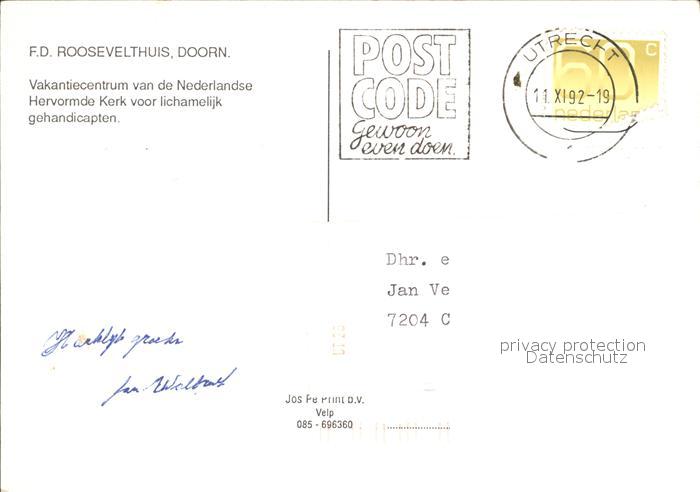 F.D. ROOSEVELTHUIS, DOORN.
Vakantiecentrum van de Nederlandse
Hervormde Kerk voor lichamelijk
gehandicapten.
POST
CODE
Gewoon
even doen.
UTRECHT
11 XI 92-19
50 C
nederland
Dhr. e
Jan Ve
7204 C
privacy protection
Datenschutz
Hartelijk groeten
Jan
Jos Pe Print B.V.
Velp
085 - 696360